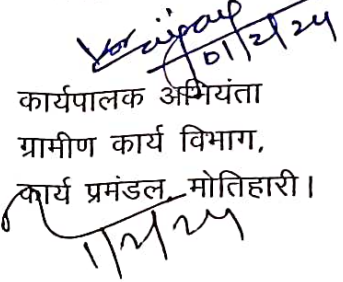 01/2/24
कार्यपालक अभियंता
ग्रामीण कार्य विभाग,
कार्य प्रमंडल, मोतिहारी।
1/2/24